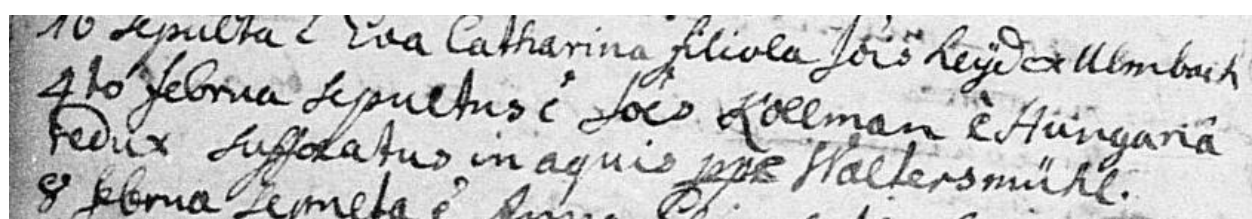 10 sepulta ē Eva Catharina filiola Jōis Leyd ex Ulmbach
4to februa sepultus ē Joēs Kollman ē Hungariâ
redux suffocatus in aquis ppe Waltersmühl.
8 februa sepulta ē Anna